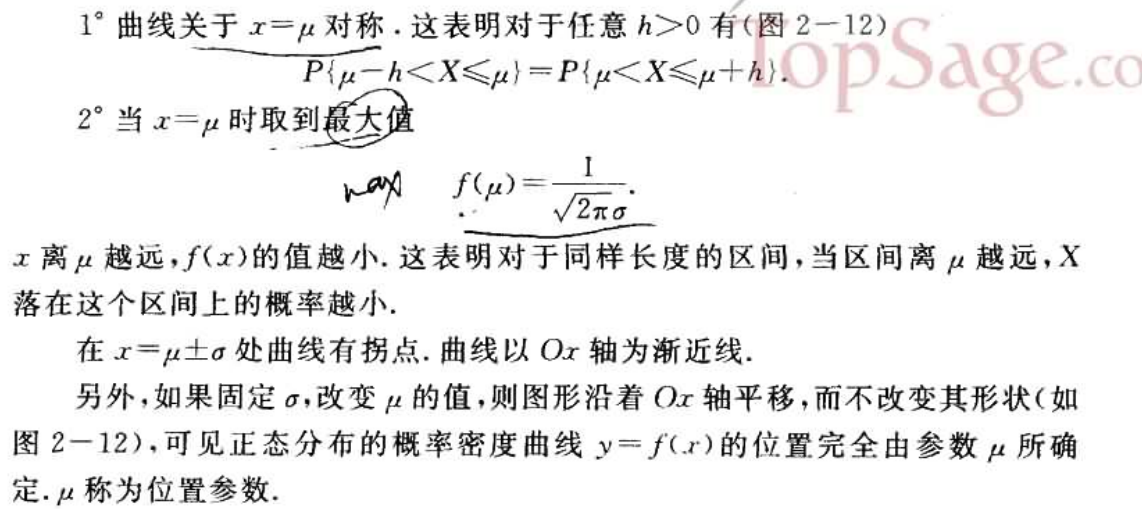 1° 曲线关于 x=μ 对称.这表明对于任意 h>0 有(图 2-12)
P{μ-h<X≤μ}=P{μ<X≤μ+h}.
TopSage.co
2° 当 x=μ 时取到最大值
max f(μ)=1/(√2π σ).
x 离 μ 越远,f(x)的值越小.这表明对于同样长度的区间,当区间离 μ 越远,X
落在这个区间上的概率越小.
在 x=μ±σ 处曲线有拐点.曲线以 Ox 轴为渐近线.
另外,如果固定 σ,改变 μ 的值,则图形沿着 Ox 轴平移,而不改变其形状(如
图 2-12),可见正态分布的概率密度曲线 y=f(x)的位置完全由参数 μ 所确
定.μ 称为位置参数.